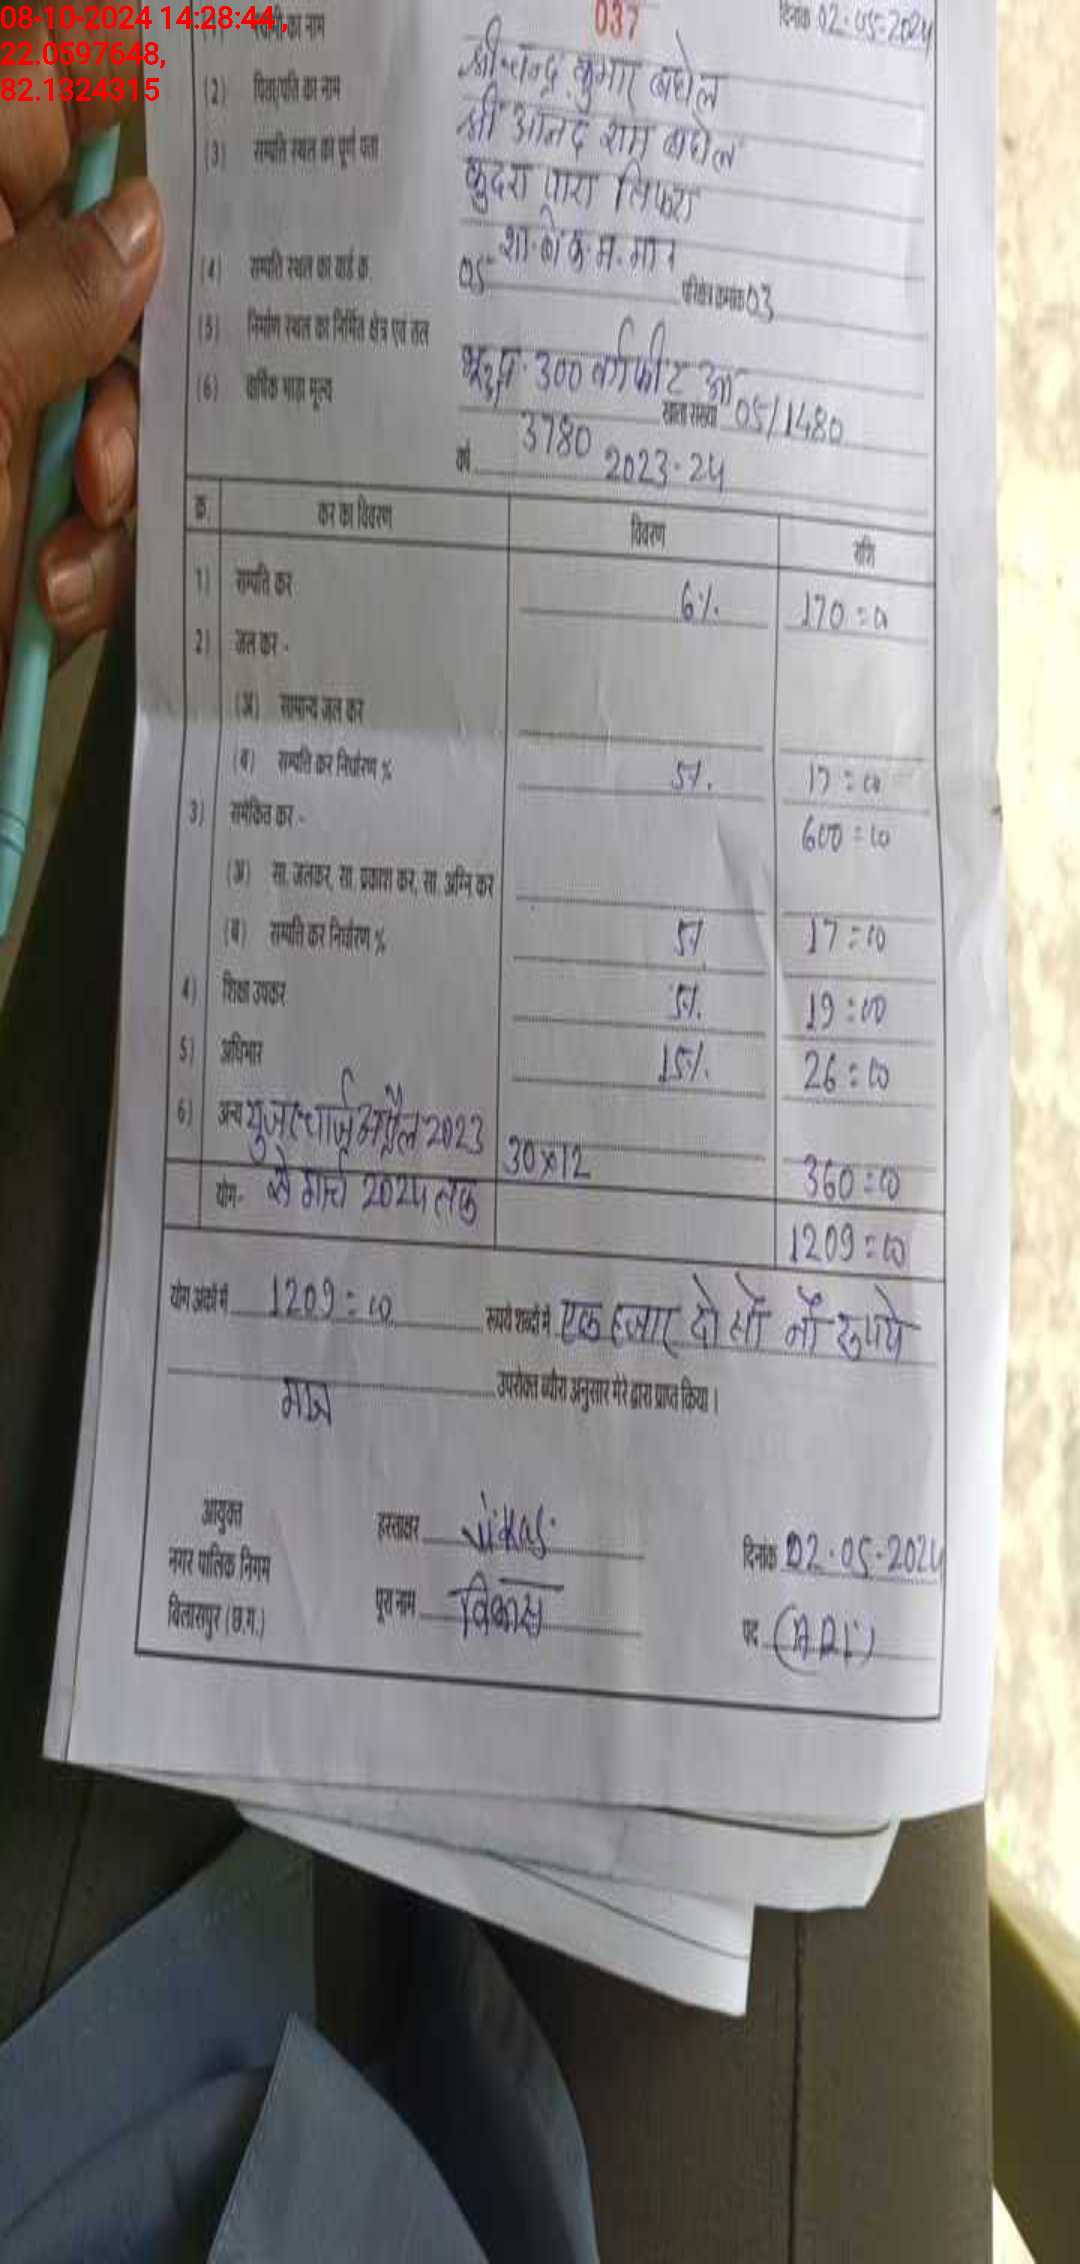 08-10-2024 14:28:44,
22.0597648,
82.1324315
037
दिनांक 02-05-2024
का नाम श्री चन्द्र कुमार बघेल
(2) पिता/पति का नाम श्री आनंद राम बघेल
(3) सम्पत्ति स्थल का पूर्ण पता कुदरा पारा तिफरा
(4) सम्पत्ति स्थल का वार्ड क्र. 05 परिक्षेत्र क्रमांक 03
(5) निर्माण स्थल का निर्मित क्षेत्र एवं तल 300 वर्गफीट
(6) वार्षिक भाड़ा मूल्य 3780 खाता संख्या 05/1480
वर्ष 2023-24
क्र. कर का विवरण विवरण राशि
1) सम्पत्ति कर 6% 170=00
2) जल कर -
(अ) सामान्य जल कर
(ब) सम्पत्ति कर निर्धारण % 5% 17=00
3) समेकित कर - 600=00
(अ) सा. जलकर, सा. प्रकाश कर, सा. अग्नि कर
(ब) सम्पत्ति कर निर्धारण % 5% 17=00
4) शिक्षा उपकर 5% 19=00
5) अधिभार 15% 26=00
6) अन्य युजर चार्ज अप्रैल 2023 30x12 360=00
योग- से मार्च 2024 तक 1209=00
योग अंकों में 1209=00 रूपये शब्दों में एक हजार दो सौ नौ रुपये
मात्र उपरोक्त ब्यौरा अनुसार मेरे द्वारा प्राप्त किया।
आयुक्त हस्ताक्षर Vikas दिनांक 02-05-2024
नगर पालिक निगम पूरा नाम विकास
बिलासपुर (छ.ग.) पद (ARI)